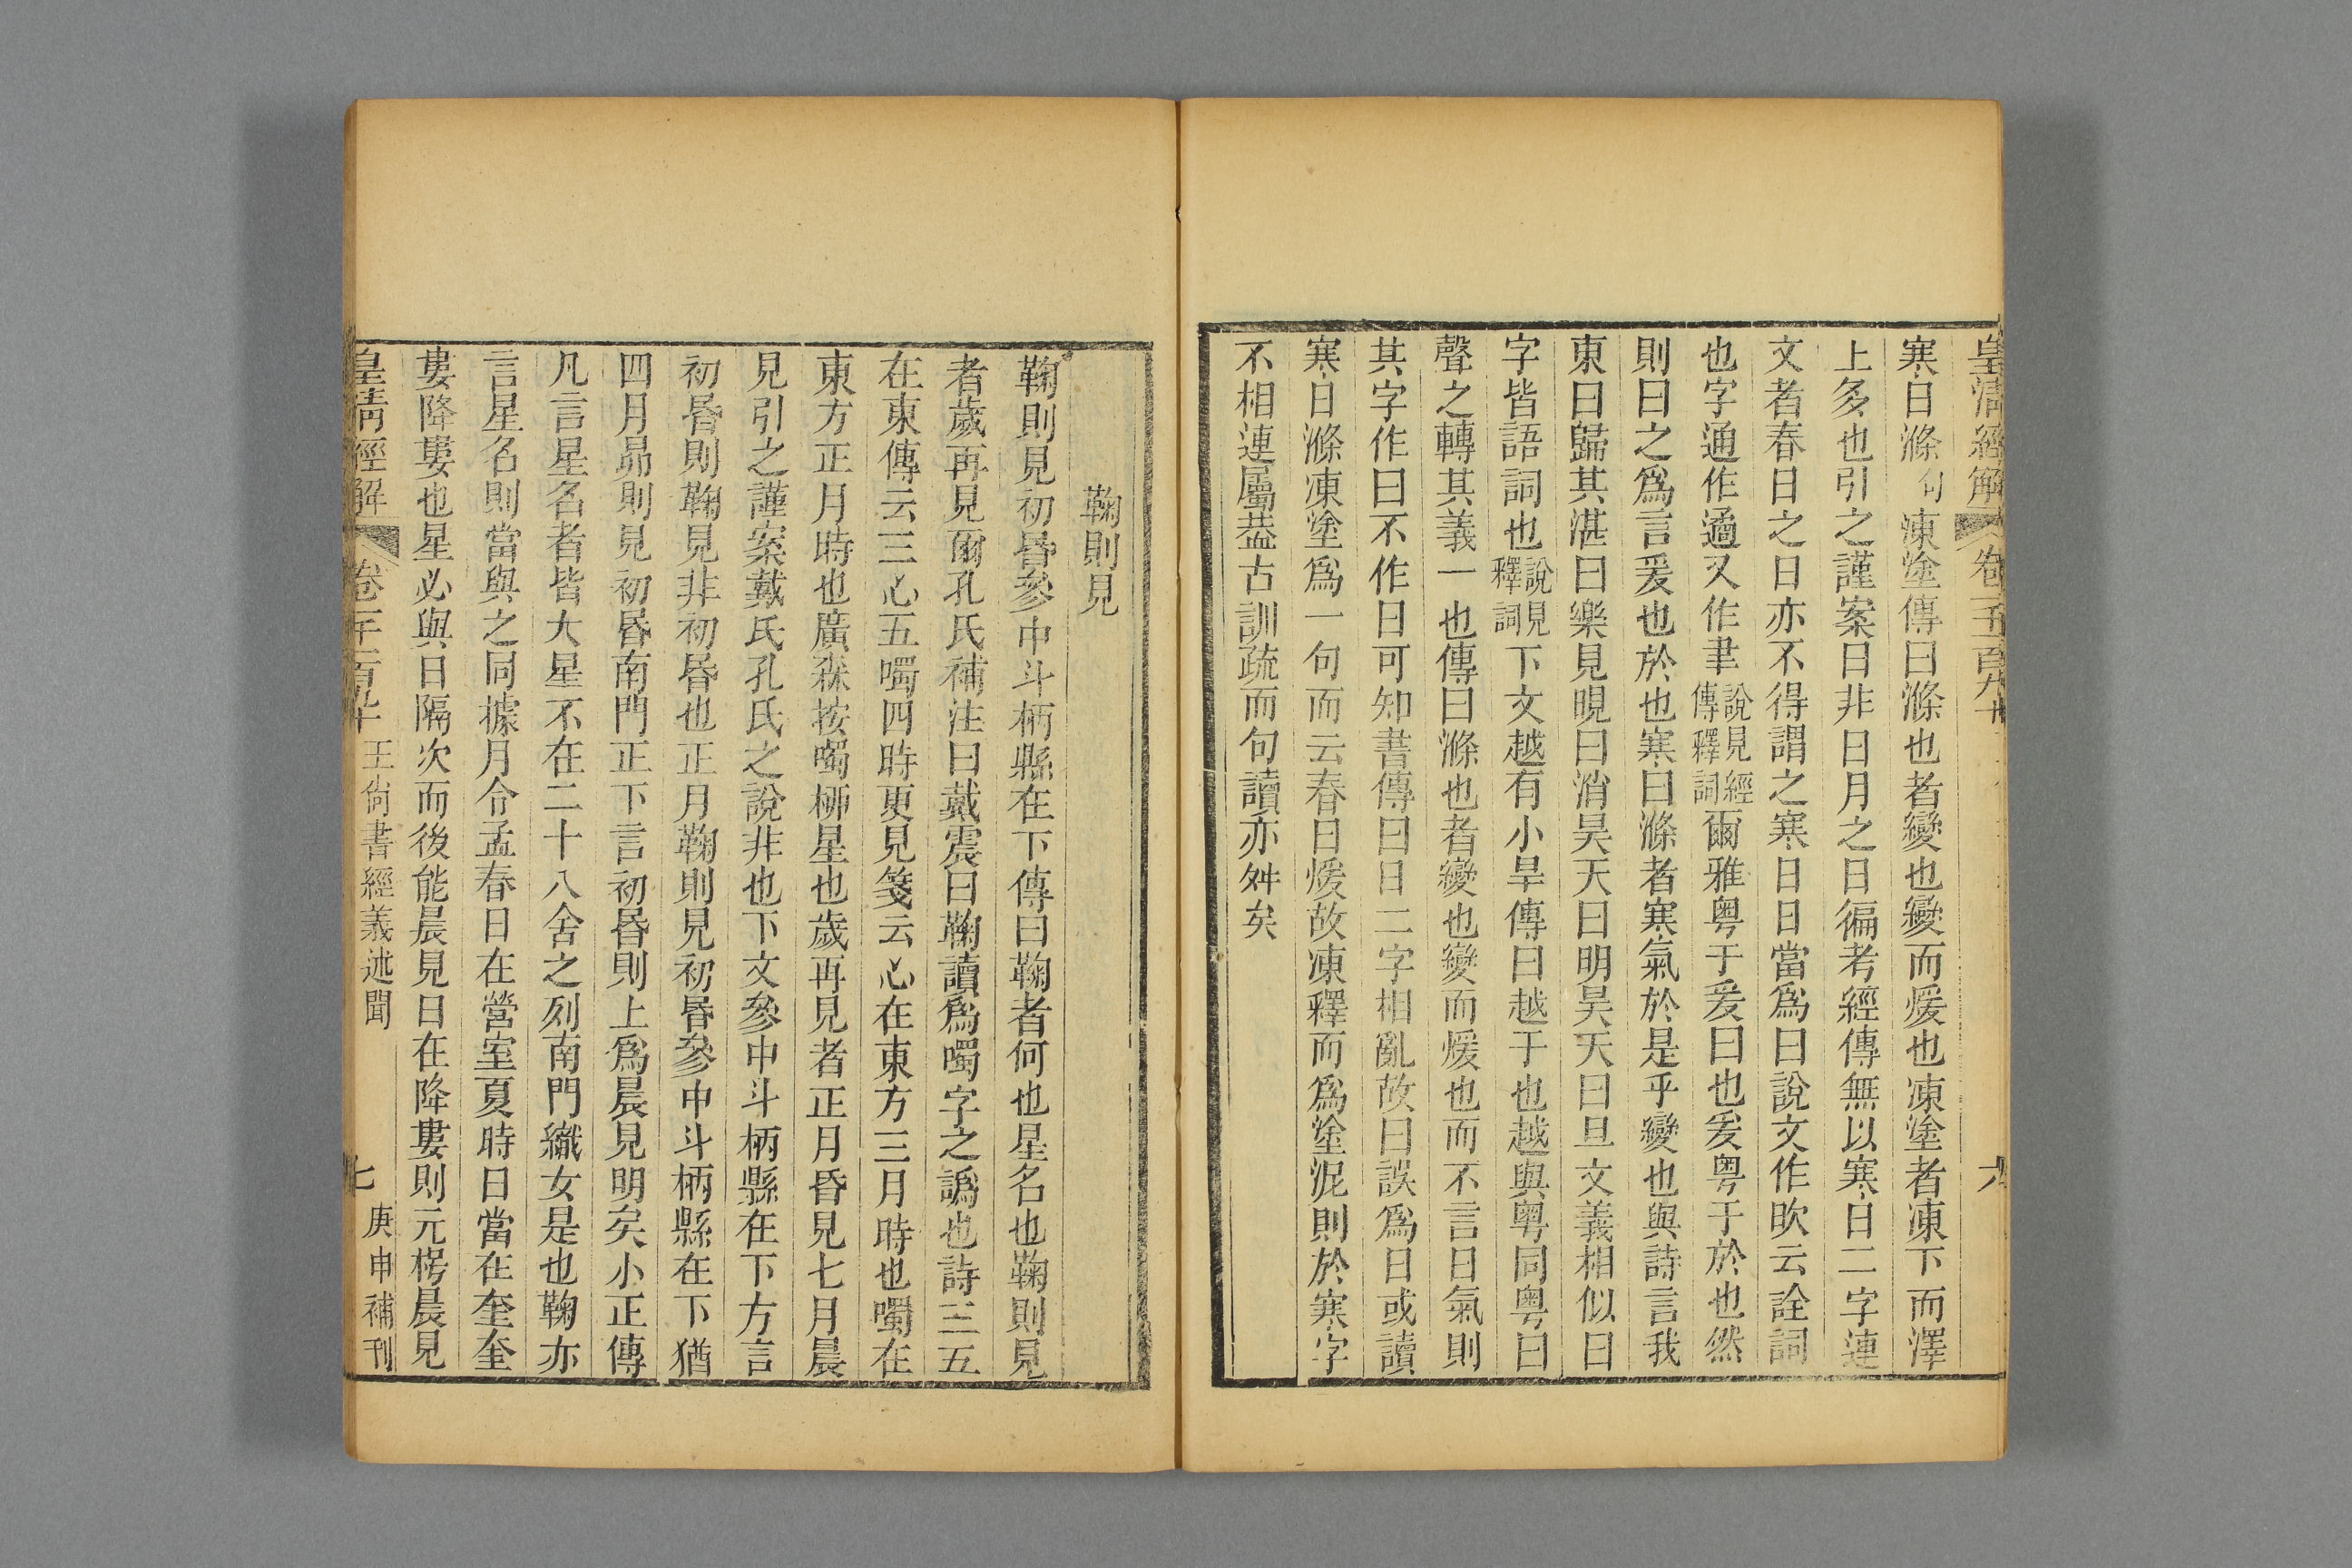 皇清經解 卷千一百九十 六
寒日滌句凍塗傳曰滌也者變也變而煖也凍塗者凍下而澤
上多也引之謹案日非日月之日徧考經傳無以寒日二字連
文者春日之日亦不得謂之寒日日當爲曰說文作欥云詮詞
也字通作遹又作聿說見經傳釋詞爾雅粤于爰曰也爰粤于於也然
則曰之爲言爰也於也寒曰滌者寒氣於是乎變也與詩言我
東曰歸其湛曰樂見晛曰消昊天曰明昊天曰旦文義相似曰
字皆語詞也說見釋詞下文越有小旱傳曰越于也越與粤同粤曰
聲之轉其義一也傳曰滌也者變也變而煖也而不言日氣則
其字作曰不作日可知書傳曰日二字相亂故曰誤爲日或讀
寒日滌凍塗爲一句而云春日煖故凍釋而爲塗泥則於寒字
不相連屬葢古訓疏而句讀亦舛矣
鞠則見
鞠則見初昏參中斗柄縣在下傳曰鞠者何也星名也鞠則見
者歲再見爾孔氏補注曰戴震曰鞠讀爲噣字之譌也詩三五
在東傳云三心五噣四時更見箋云心在東方三月時也噣在
東方正月時也廣森按噣桺星也歲再見者正月昏見七月晨
見引之謹案戴氏孔氏之說非也下文參中斗柄縣在下方言
初昏則鞠見非初昏也正月鞠則見初昏參中斗柄縣在下猶
四月昴則見初昏南門正下言初昏則上爲晨見明矣小正傳
凡言星名者皆大星不在二十八舍之列南門織女是也鞠亦
言星名則當與之同據月令孟春日在營室夏時日當在奎奎
婁降婁也星必與日隔次而後能晨見日在降婁則元枵晨見
皇清經解 卷千一百九十 王尙書經義述聞 七 庚申補刊